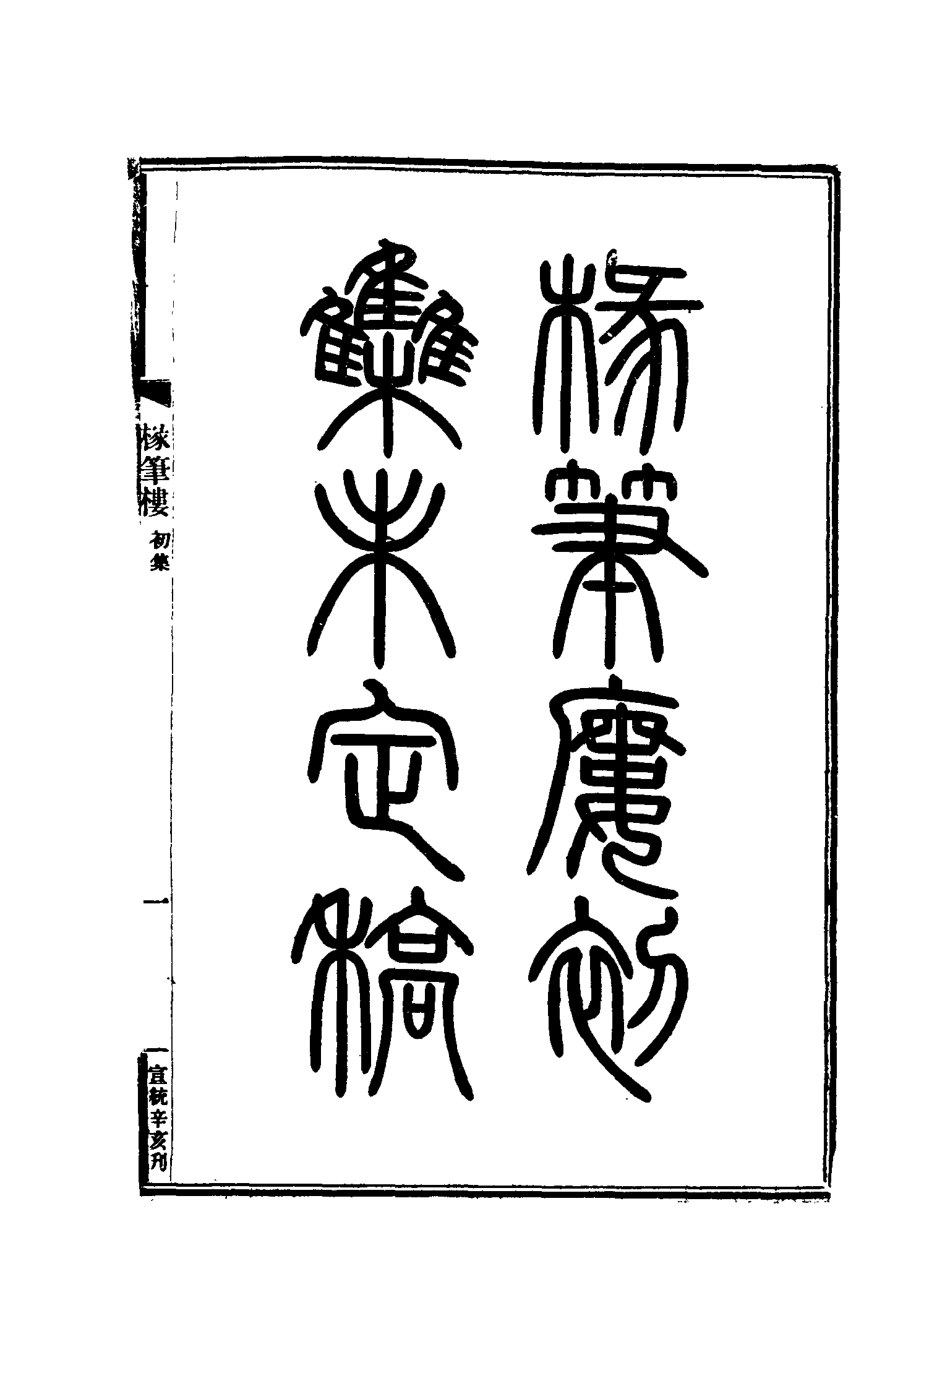 椽筆廔初
雧未定稿
椽筆樓
初集
一
宣統辛亥刊